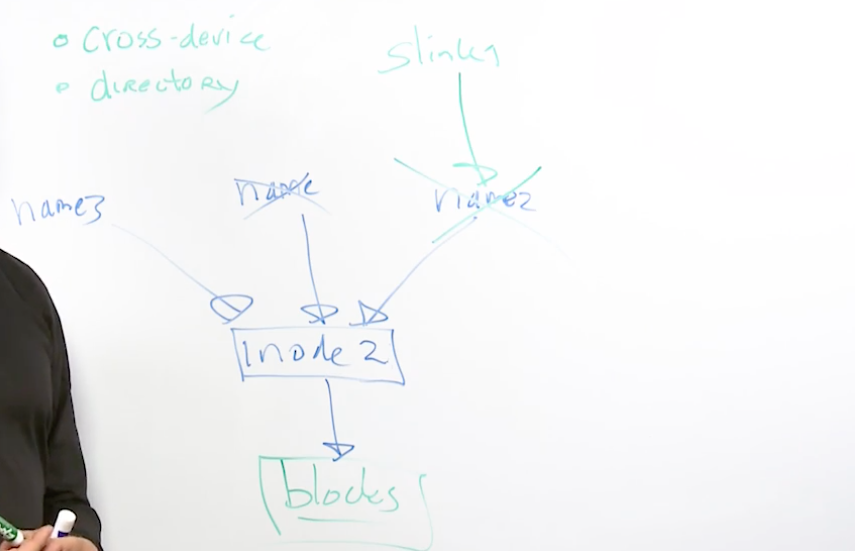 cross-device
directory
slink1
name3
name
name2
inode 2
blocks